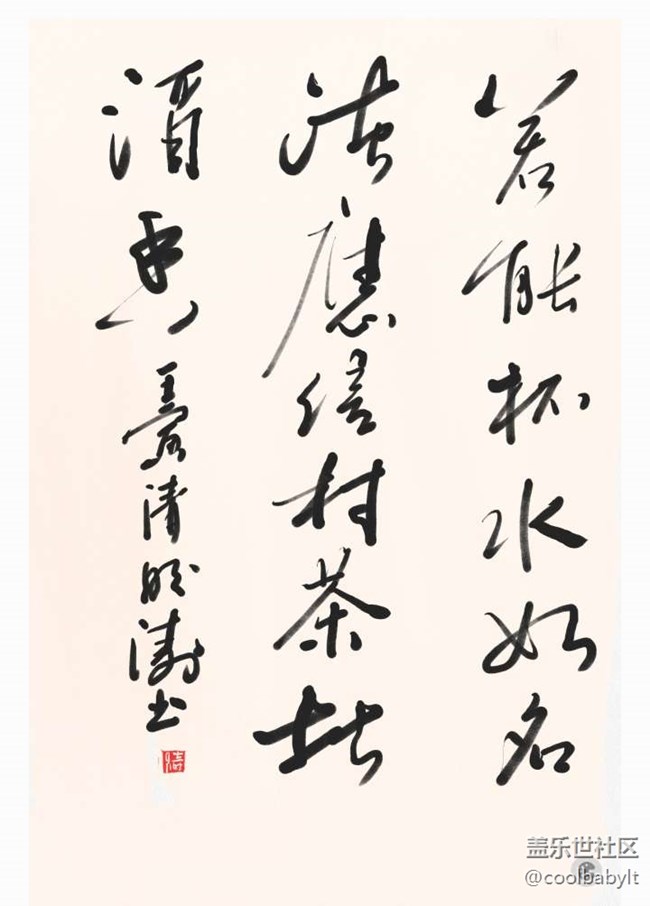 若能杯水如名
淡應信村茶比
酒香 清 濤书
盖乐世社区
@coolbabylt